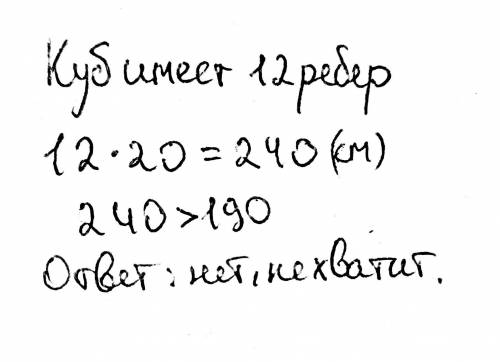 Куб имеет 12 ребер
12·20=240 (см)
240>190
Ответ: нет, не хватит.